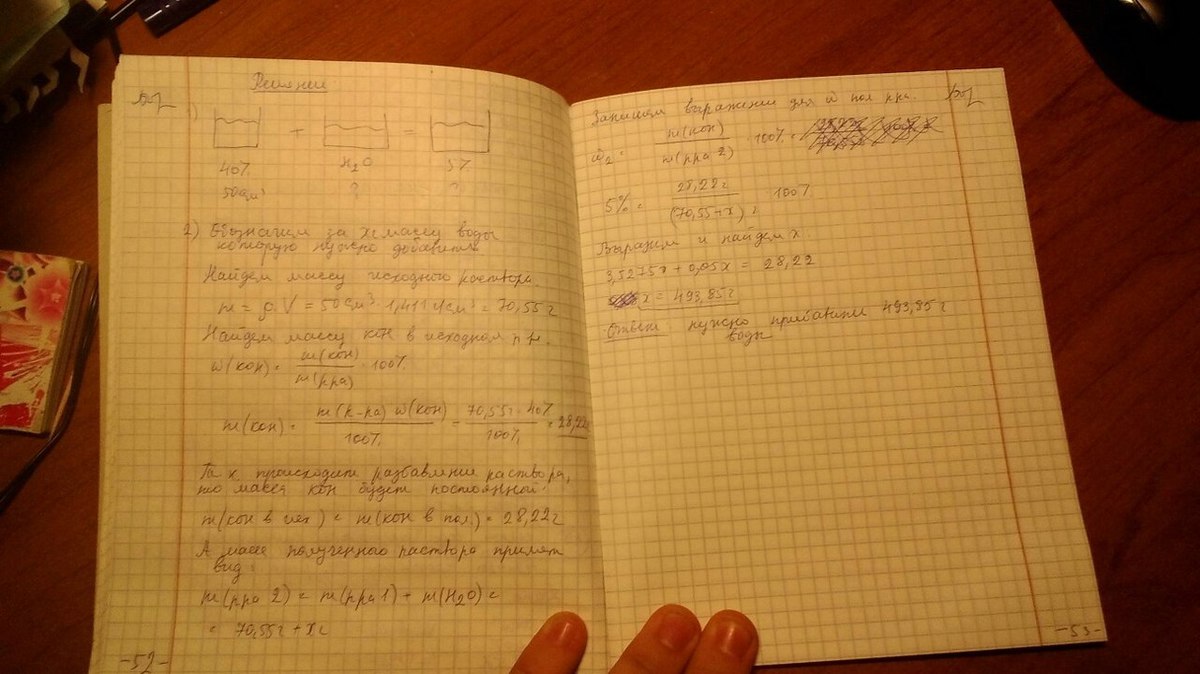 Решение
1)
+ =
40% H₂O 5%
50 см³ ? ?
2) Обозначим за x массу воды
которую нужно добавить.
Найдем массу исходного раствора.
m = ρ·V = 50 см³ · 1,411 г/см³ = 70,55 г
Найдем массу KOH в исходном р-ре.
ω(KOH) = m(KOH) / m(рра) · 100%
m(KOH) = m(р-ра) ω(KOH) / 100% = 70,55г · 40% / 100% = 28,22г
Та к происходит разбавление раствора,
то масса KOH будет постоянной.
m(KOH в исх) = m(KOH в пол) = 28,22г
А масса полученного раствора примет
вид:
m(рра 2) = m(рра1) + m(H₂O) =
= 70,55г + xг
-52-
Запишем выражение для ω пол рра.
ω₂ = m(KOH) / m(рра 2) · 100% =
5% = 28,22г / (70,55+x)г · 100%
Выразим и найдем x.
3,5275x + 0,05x = 28,22
x = 493,85г
Ответ нужно прибавить 493,85г
воды
-53-